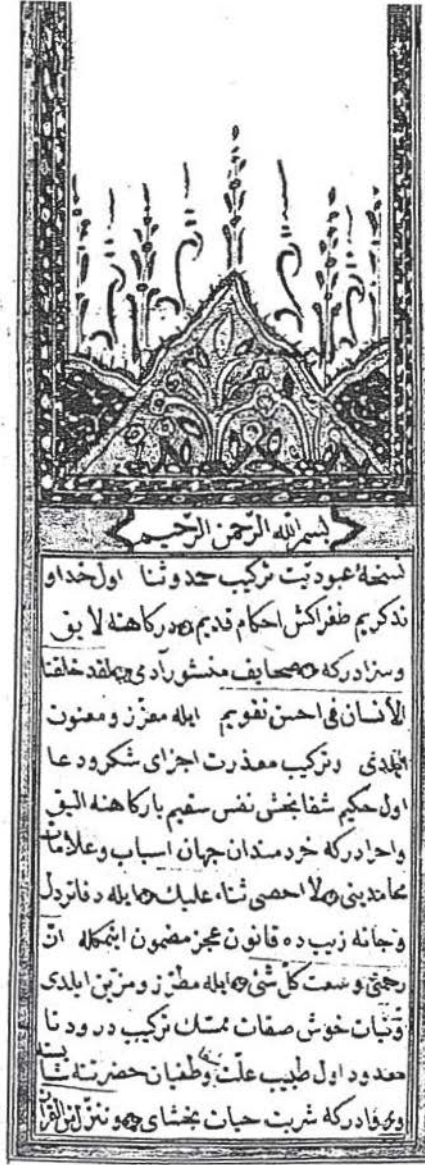 بسم الله الرّحمن الرّحيم
نسخهٔ عبوديت تركيب حمد و ثنا اول خداو
ندكريم طغراكش احكام قديم دركاهنه لايق
وسزادركه صحايف منشور آدمى لقد خلقنا
الأنسان فى احسن تقويم ايله معزّز و معنون
ايلدى و تركيب معذرت اجزاى شكر و دعا
اول حكيم شفابخش نفس سقيم باركاهنه اليق
واحرادركه خردمندان جهان اسباب وعلامات
محامدينى لا احصى ثناء عليك ايله دفاتر دل
وجانه زيب ده قانون عجز مضمون ايتمكله انّ
رحمتى وسعت كلّ شئ ايله مطرّز و مزيّن ايلدى
ونيات خوش صفات ممسّك تركيب درود نا
معدود اول طبيب علّت وطغيان حضرتنه شا
دركه شربت حيات بخشاى وننزّل من القرآن